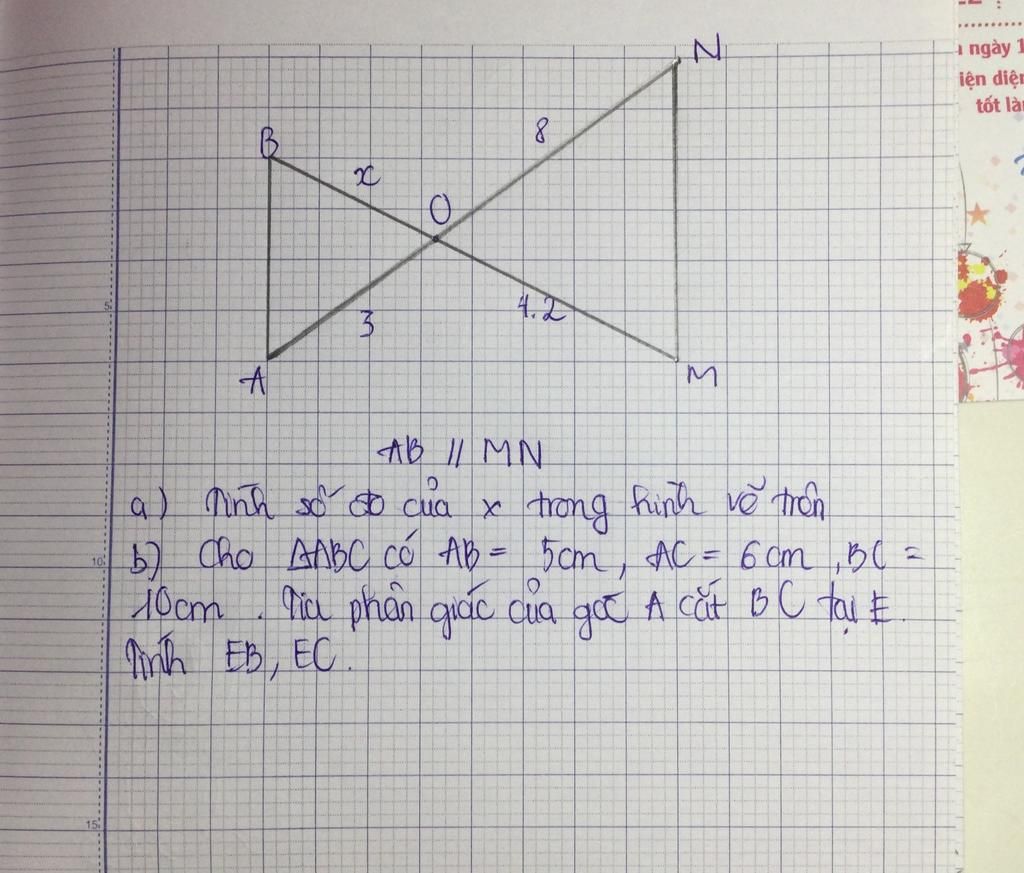 N
B
8
x
O
3
4.2
A
M
AB // MN
a) Tính số đo của x trong hình vẽ trên
b) Cho ΔABC có AB = 5cm, AC = 6cm, BC =
10cm. Tia phân giác của góc A cắt BC tại E.
Tính EB, EC.
5
10
15
ngày 1
iện diện
tốt là